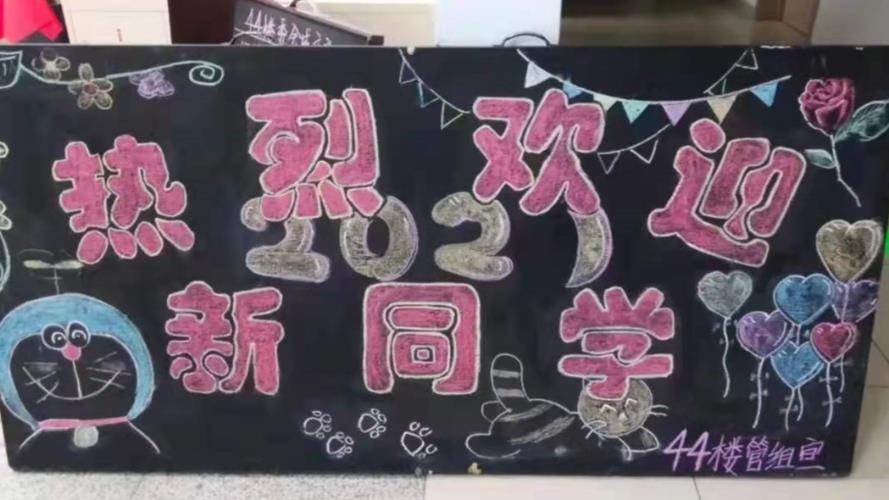 热烈欢迎
新同学
44楼管组宣